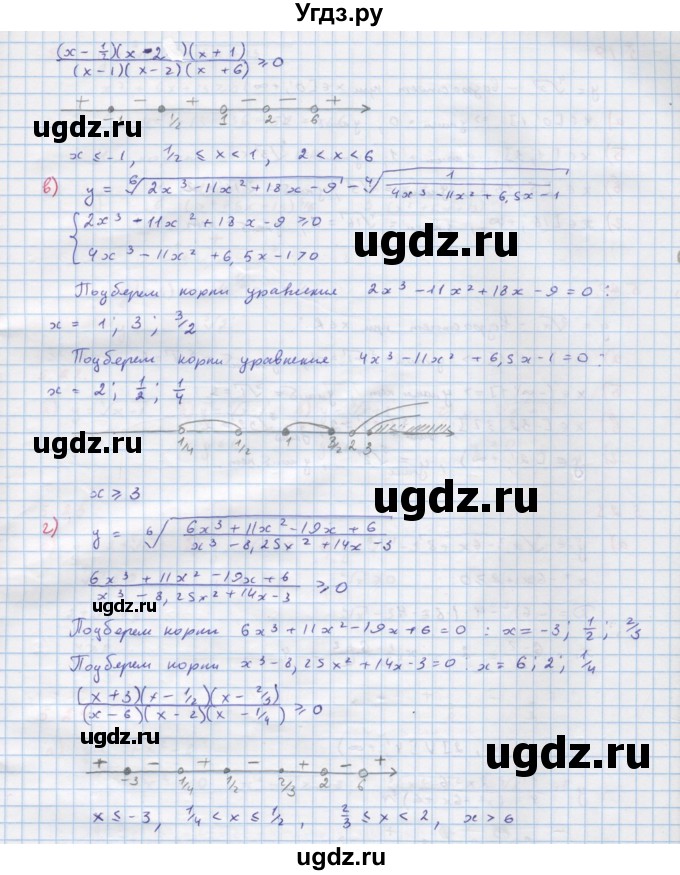 Угдз.ру
(x - 1/2)(x - 2 )(x + 1)
(x - 1)(x - 2)(x + 6) ≥ 0
+ - + - - +
-1 1/2 1 2 6
ugdz.ru ugdz.ru
x ≤ -1, 1/2 ≤ x < 1, 2 < x < 6
в) y = ⁶√(2x³ - 11x² + 18x - 9) - ⁴√(1 / (4x³ - 11x² + 6,5x - 1))
{ 2x³ - 11x² + 18x - 9 ≥ 0
ugdz.ru
4x³ - 11x² + 6,5x - 1 > 0
Подберем корни уравнения 2x³ - 11x² + 18x - 9 = 0 :
x = 1 ; 3 ; 3/2
Подберем корни уравнения 4x³ - 11x² + 6,5x - 1 = 0 :
x = 2 ; 1/2 ; 1/4
1/4 1/2 1 3/2 2 3
ugdz.ru
x ≥ 3
ugdz.ru
г) y = ⁶√((6x³ + 11x² - 19x + 6) / (x³ - 8,25x² + 14x - 3))
6x³ + 11x² - 19x + 6
x³ - 8,25x² + 14x - 3 ≥ 0
ugdz.ru
Подберем корни 6x³ + 11x² - 19x + 6 = 0 : x = -3 ; 1/2 ; 2/3
Подберем корни x³ - 8,25x² + 14x - 3 = 0 x = 6 ; 2 ; 1/4
(x + 3)(x - 1/2)(x - 2/3)
(x - 6)(x - 2)(x - 1/4) ≥ 0
ugdz.ru
+ - + - + - +
-3 1/4 1/2 2/3 2 6
x ≤ -3, 1/4 < x ≤ 1/2, 2/3 ≤ x < 2, x > 6
ugdz.ru